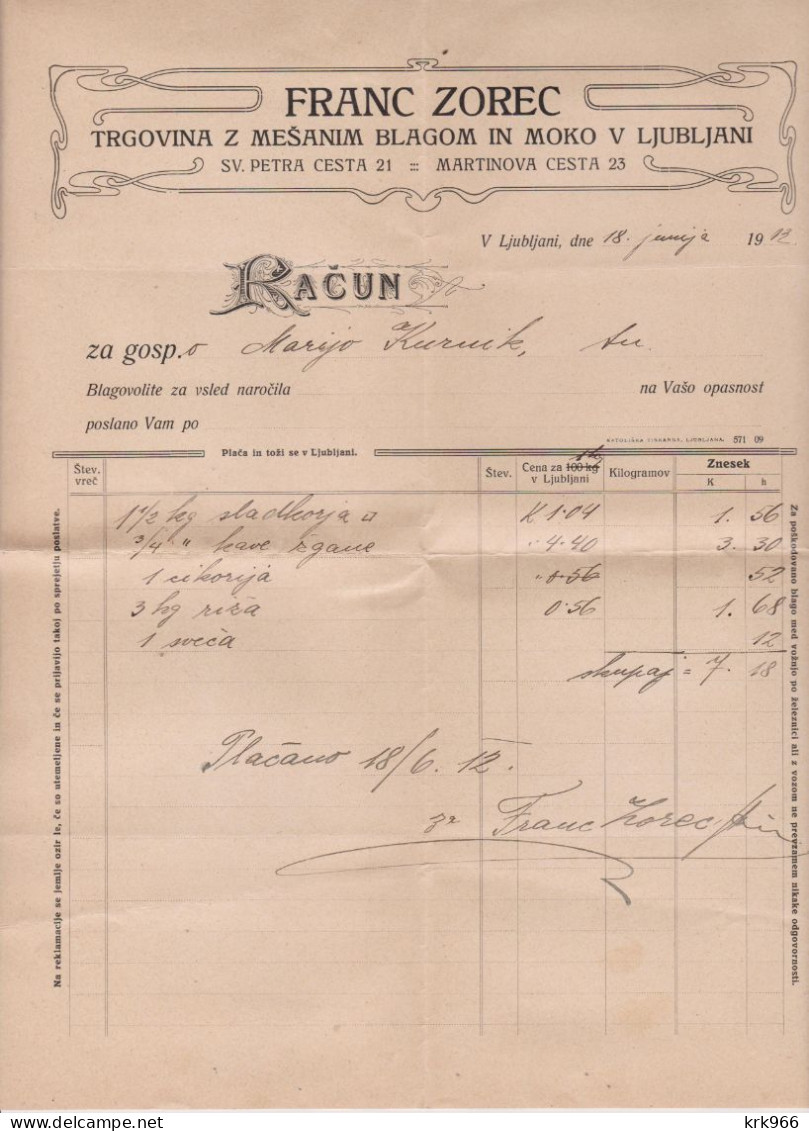 FRANC ZOREC
TRGOVINA Z MEŠANIM BLAGOM IN MOKO V LJUBLJANI
SV. PETRA CESTA 21 :: MARTINOVA CESTA 23
V Ljubljani, dne 18. junija 1912.
RAČUN
za gosp.o Marijo Kurnik, tu.
Blagovolite za vsled naročila na Vašo opasnost
poslano Vam po
KATOLIŠKA TISKARNA, LJUBLJANA. 571 09
Plača in toži se v Ljubljani.
Štev. vreč Štev. Cena za 100 kg 1 kg v Ljubljani Kilogramov Znesek
K h
1 1/2 kg sladkorja K 1·04 1. 56
3/4 " kave žgane " 4·40 3. 30
1 cikorija " 0·56 52
3 kg riža 0·56 1. 68
1 sveča 12
skupaj = 7. 18
Plačano 18/6. 12.
za Franc Zorec
Na reklamacije se jemlje ozir le, če so utemeljene in če se prijavijo takoj po sprejetju poslatve.
Za poškodovano blago med vožnjo po železnici ali z vozom ne prevzamem nikake odgovornosti.
krk966